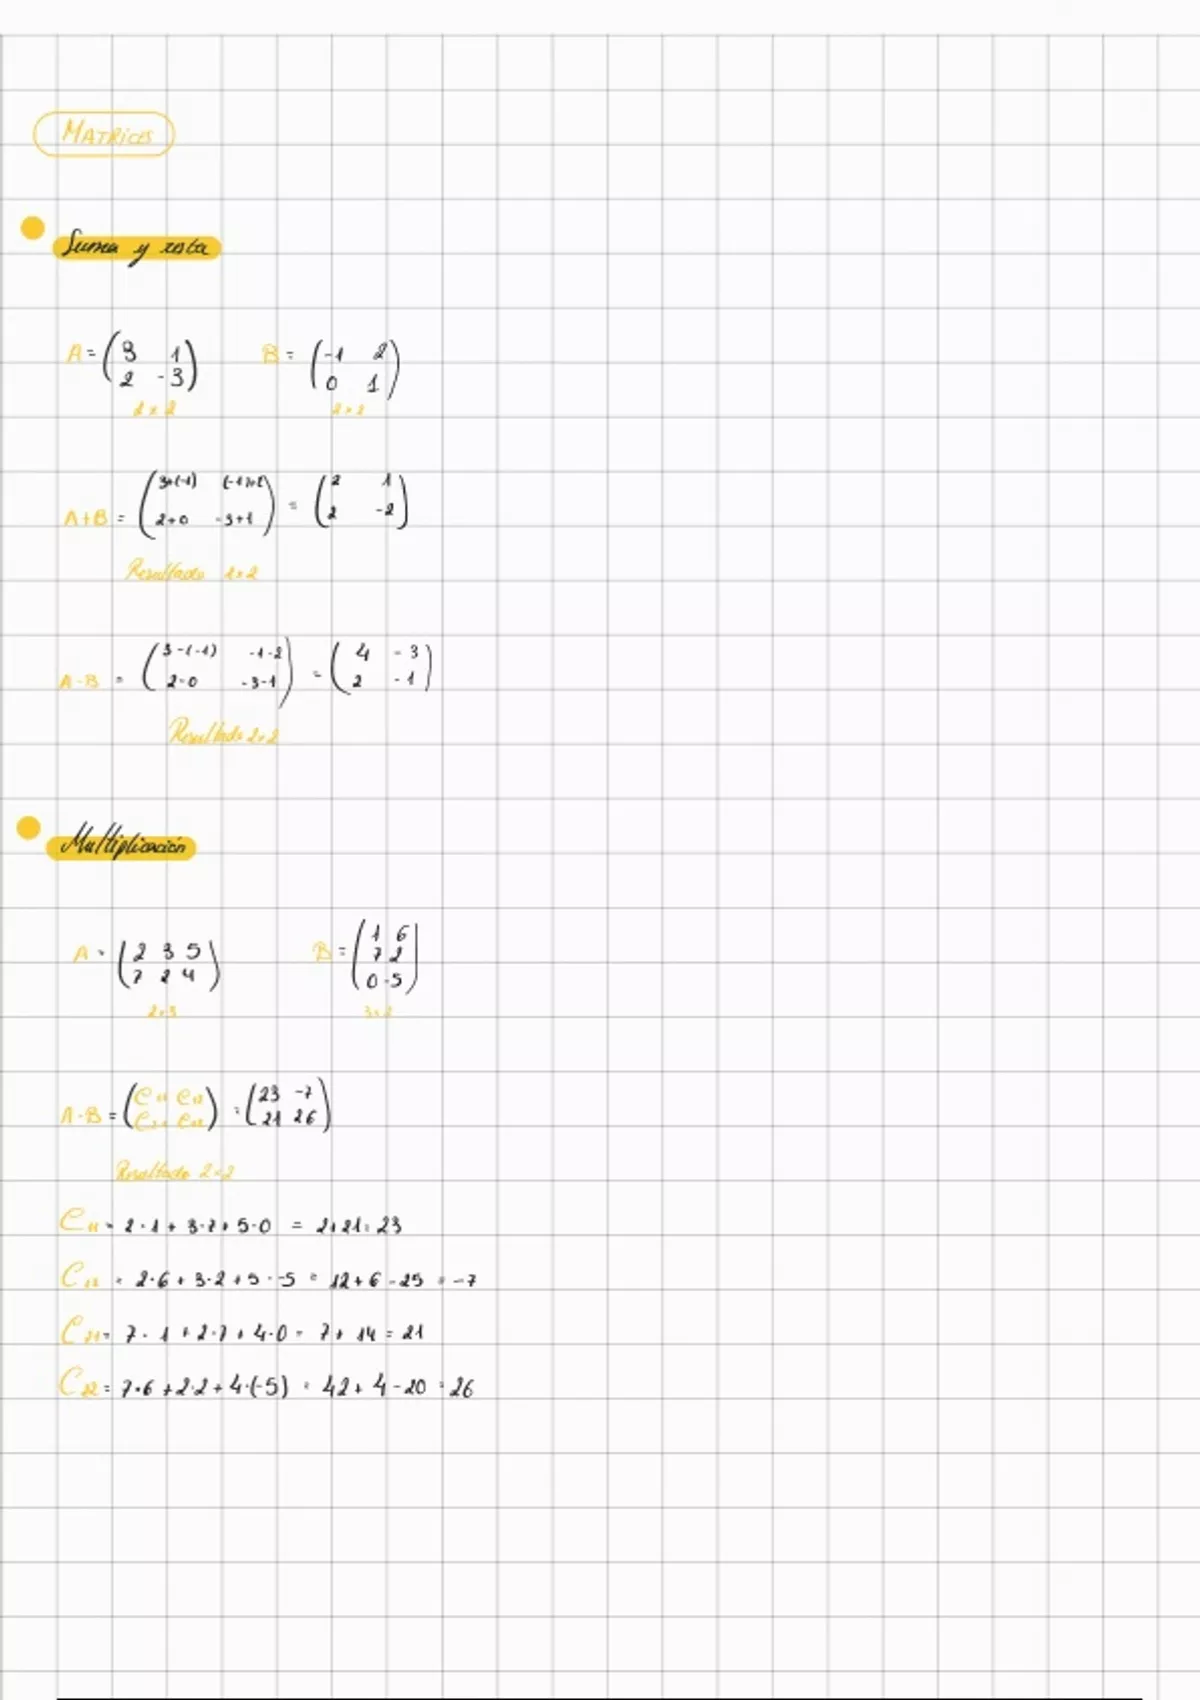 MATRICES
Suma y resta
A = (3 1
2 -3) B = (-1 2
0 1)
2x2 2x2
A+B = (3+(-1) (-1)+2
2+0 -3+1) = (2 1
2 -2)
Resultado 2x2
A-B = (3-(-1) -1-2
2-0 -3-1) = (4 -3
2 -1)
Resultado 2x2
Multiplicación
A = (2 3 5
7 2 4) B = (1 6
7 2
0 -5)
2x3 3x2
A·B = (C11 C12
C21 C22) = (23 -7
21 26)
Resultado 2x2
C11 = 2·1 + 3·7 + 5·0 = 2+21 = 23
C12 = 2·6 + 3·2 + 5·-5 = 12+6-25 = -7
C21 = 7·1 + 2·7 + 4·0 = 7+14 = 21
C22 = 7·6 + 2·2 + 4·(-5) = 42+4-20 = 26